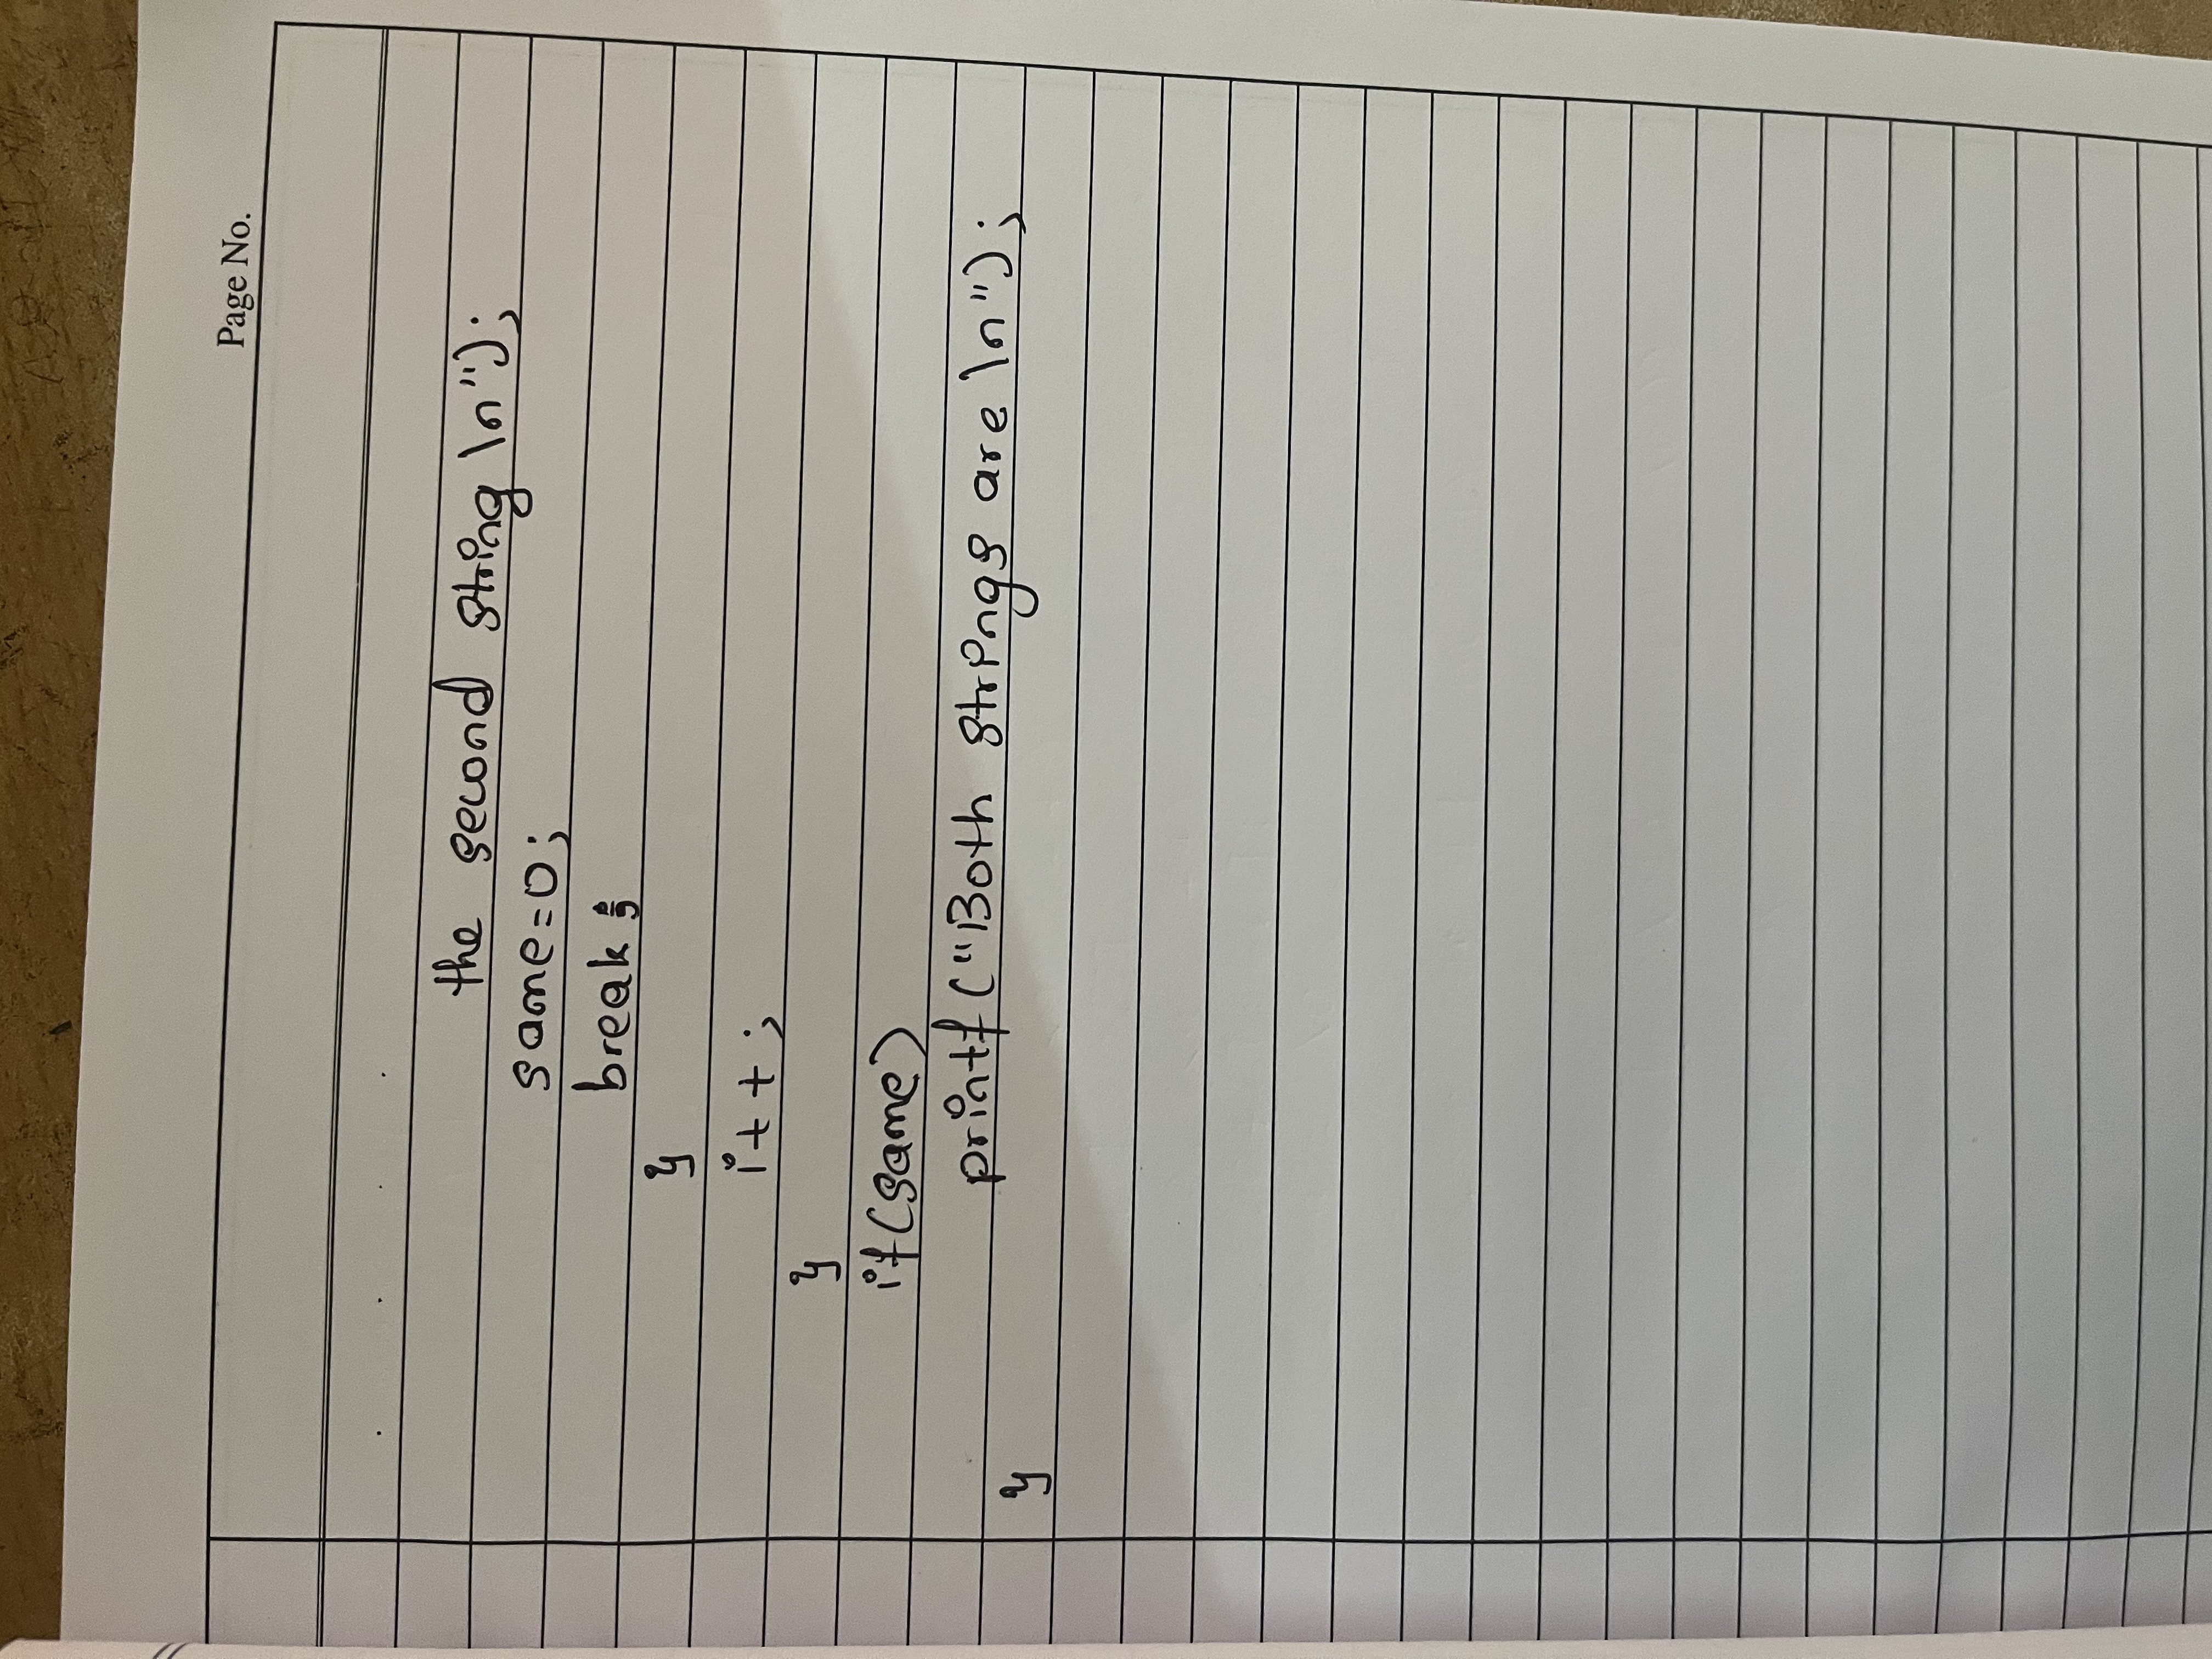 Page No.
the second string \n");
same=0;
break;
}
i++;
}
if(same)
printf("Both strings are \n");
}